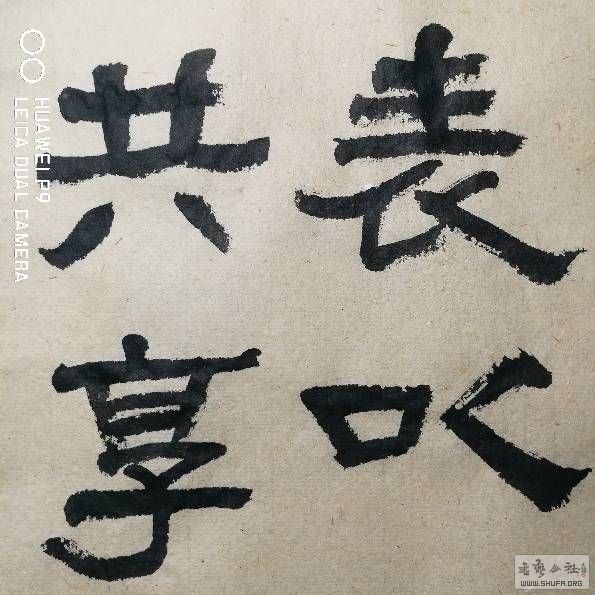 表以
共享
HUAWEI P9
LEICA DUAL CAMERA
书艺公社
WWW.SHUFA.ORG